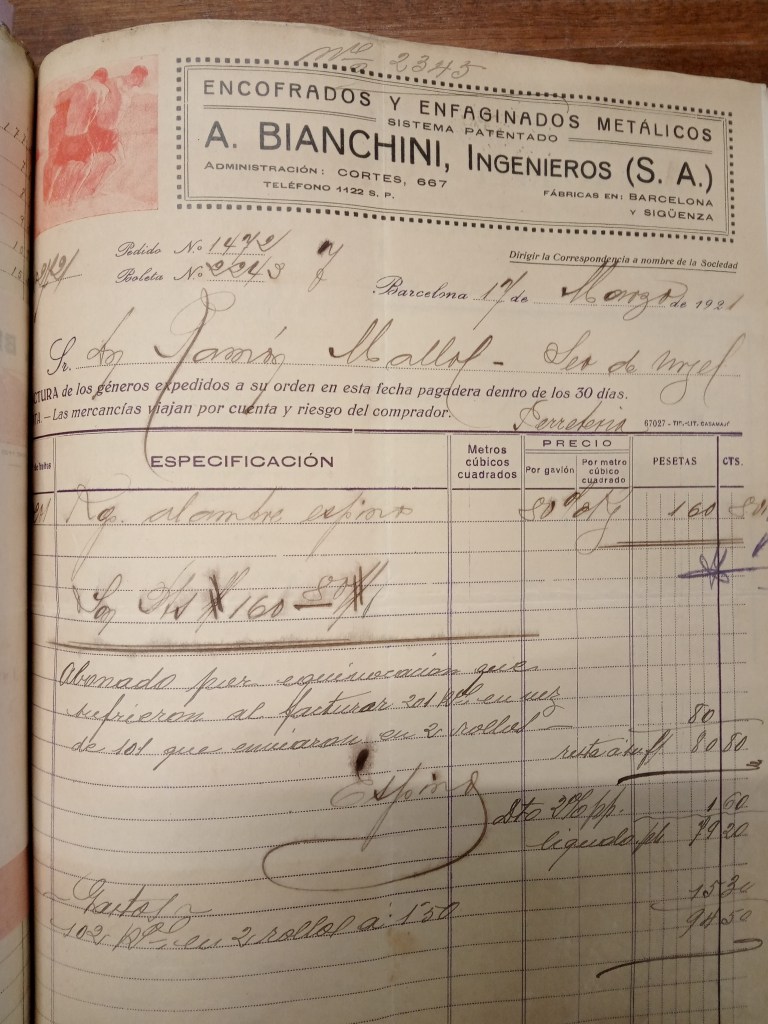 Nº 2345
ENCOFRADOS Y ENFAGINADOS METÁLICOS
SISTEMA PATENTADO
A. BIANCHINI, INGENIEROS (S. A.)
ADMINISTRACIÓN: CORTES, 667
TELÉFONO 1122 S. P.
FÁBRICAS EN: BARCELONA
Y SIGÜENZA
Pedido N.º 1472
Boleta N.º 2243
Dirigir la Correspondencia a nombre de la Sociedad
Barcelona 17 de Marzo de 1921
Sr. Dn Ramón Mallol - Seo de Urgel
CTURA de los géneros expedidos a su orden en esta fecha pagadera dentro de los 30 días.
TA.- Las mercancías viajan por cuenta y riesgo del comprador.
Ferreteria
67027 - TIP.-LIT. CASAMAJÓ
de bultos
ESPECIFICACIÓN
Metros cúbicos cuadrados
PRECIO
Por gavión
Por metro cúbico cuadrado
PESETAS
CTS.
201 Kg. alambre espino 80 % 160 80
Son Pts 160 80
Abonado por equivocación que
sufrieron al facturar 201 Kº en vez
de 101 que enviaron en 2 rollos 80
resta a su ff 80 80
Espino
Dto 2% pp. 1 60
liquido pts 79 20
Gastos 15 30
102 Kº en 2 rollos á 1'50 94 50